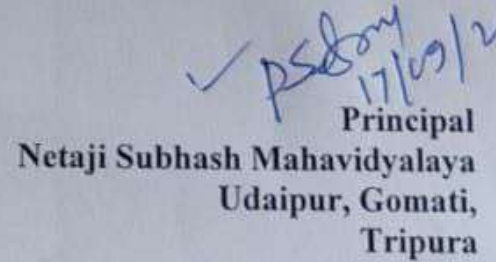 17/09/2
Principal
Netaji Subhash Mahavidyalaya
Udaipur, Gomati,
Tripura